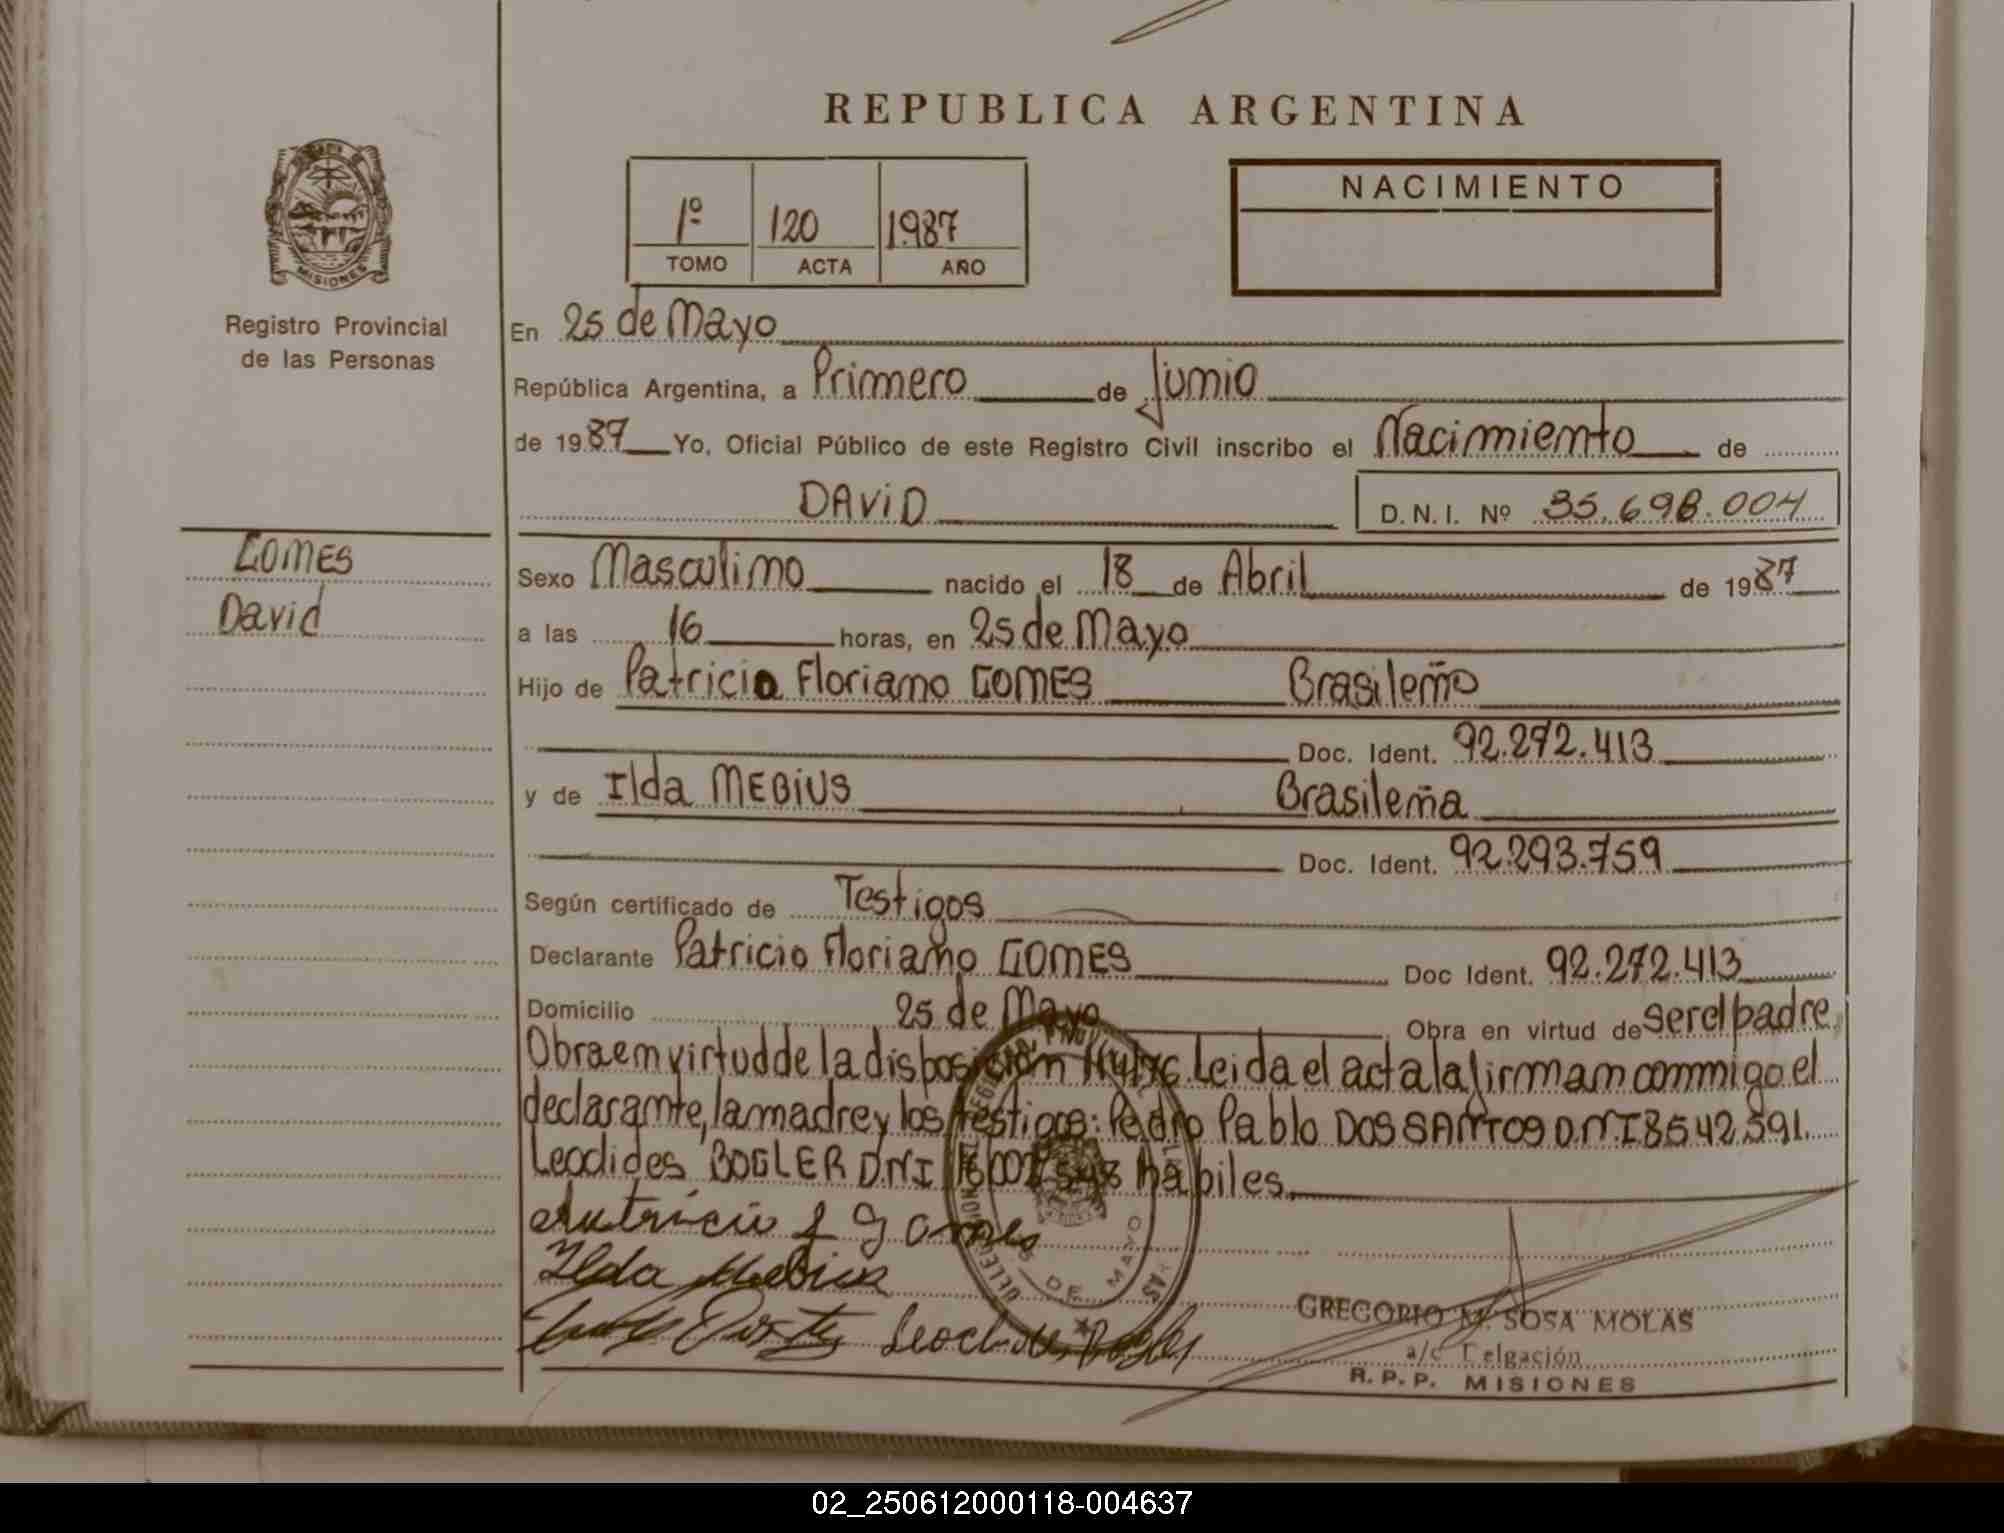 REPUBLICA ARGENTINA
MISIONES
Registro Provincial
de las Personas
1º 120 1987
TOMO ACTA AÑO
NACIMIENTO
En 25 de Mayo
República Argentina, a Primero de Junio
de 1987 Yo, Oficial Público de este Registro Civil inscribo el Nacimiento de
DAViD D.N.I. Nº 35.698.004
GOMES
David
Sexo Masculino nacido el 18 de Abril de 1987
a las 16 horas, en 25 de Mayo
Hijo de Patricio Floriano GOMES Brasileño
Doc. Ident. 92.272.413
y de Ilda MEBiUS Brasileña
Doc. Ident. 92.293.759
Según certificado de Testigos
Declarante Patricio Floriano GOMES Doc Ident. 92.272.413
Domicilio 25 de Mayo Obra en virtud de ser el padre
Obra en virtud de la disposición Leida el acta la firman conmigo el
declarante, la madre y los testigos: Pedro Pablo DOS SANTOS D.N.I 8542.591.
Leodides BOGLER D.N.I habiles.
DE MAYO
Ilda Mebius
GREGORIO M. SOSA MOLAS
a/c Delgación
R.P.P. MISIONES
02_250612000118-004637